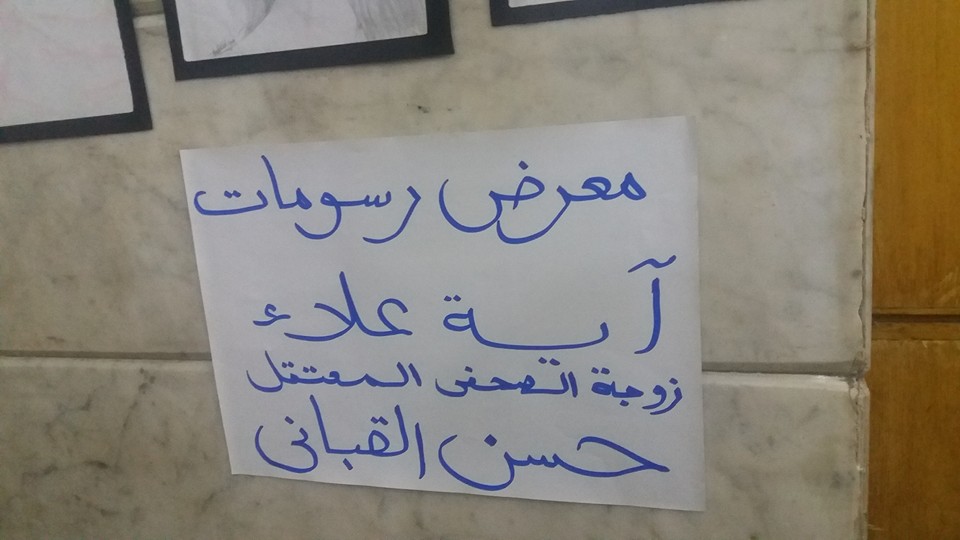 معرض رسومات
آية علاء
زوجة الصحفى المعتقل
حسن القبانى